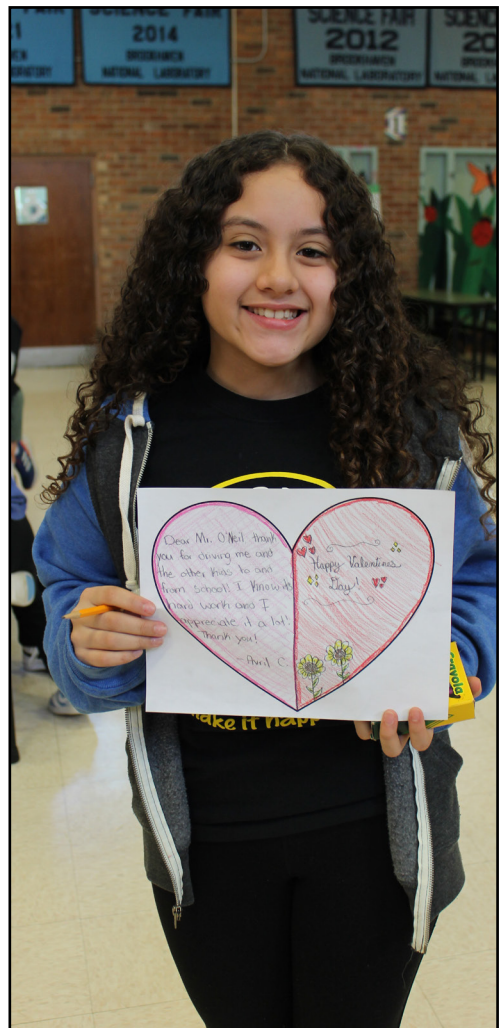 SCIENCE FAIR
2014
BROOKHAVEN
NATIONAL LABORATORY
SCIENCE FAIR
2012
BROOKHAVEN
NATIONAL LABORATORY
Dear Mr. O'Neil thank
you for driving me and
the other kids to and
from school! I know its
hard work and I
appreciate it a lot!
Thank you!
- Avril C.
Happy Valentines
Day!
crayola
make it happ